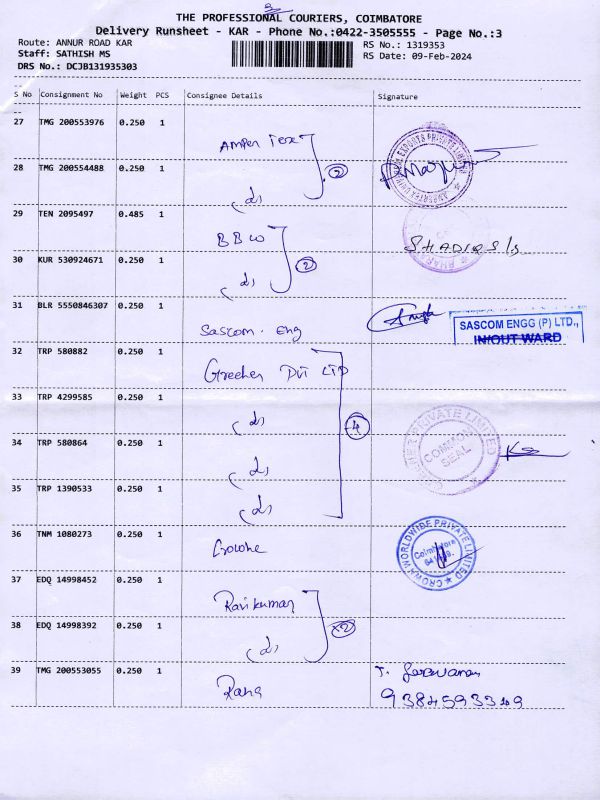 THE PROFESSIONAL COURIERS, COIMBATORE
Delivery Runsheet - KAR - Phone No.:0422-3505555 - Page No.:3
Route: ANNUR ROAD KAR
RS No.: 1319353
Staff: SATHISH MS
RS Date: 09-Feb-2024
DRS No.: DCJB131935303
S No Consignment No Weight PCS Consignee Details Signature
27 TMG 200553976 0.250 1 Amper Tex
28 TMG 200554488 0.250 1 (d) 2
29 TEN 2095497 0.485 1 BBW
30 KUR 530924671 0.250 1 (d) 2
31 BLR 5550846307 0.250 1 Sascom. Eng
SASCOM ENGG (P) LTD.,
IN/OUT WARD
32 TRP 580882 0.250 1
33 TRP 4299585 0.250 1 (d) 4
34 TRP 580864 0.250 1 (d)
PRIVATE LIMITED
COMMON
SEAL
35 TRP 1390533 0.250 1 (d)
36 TNM 1080273 0.250 1
CROWN WORLDWIDE PRIVATE LIMITED
Coimbatore
37 EDQ 14998452 0.250 1 Ravikumar
38 EDQ 14998392 0.250 1 (d) 2
39 TMG 200553055 0.250 1 Rana